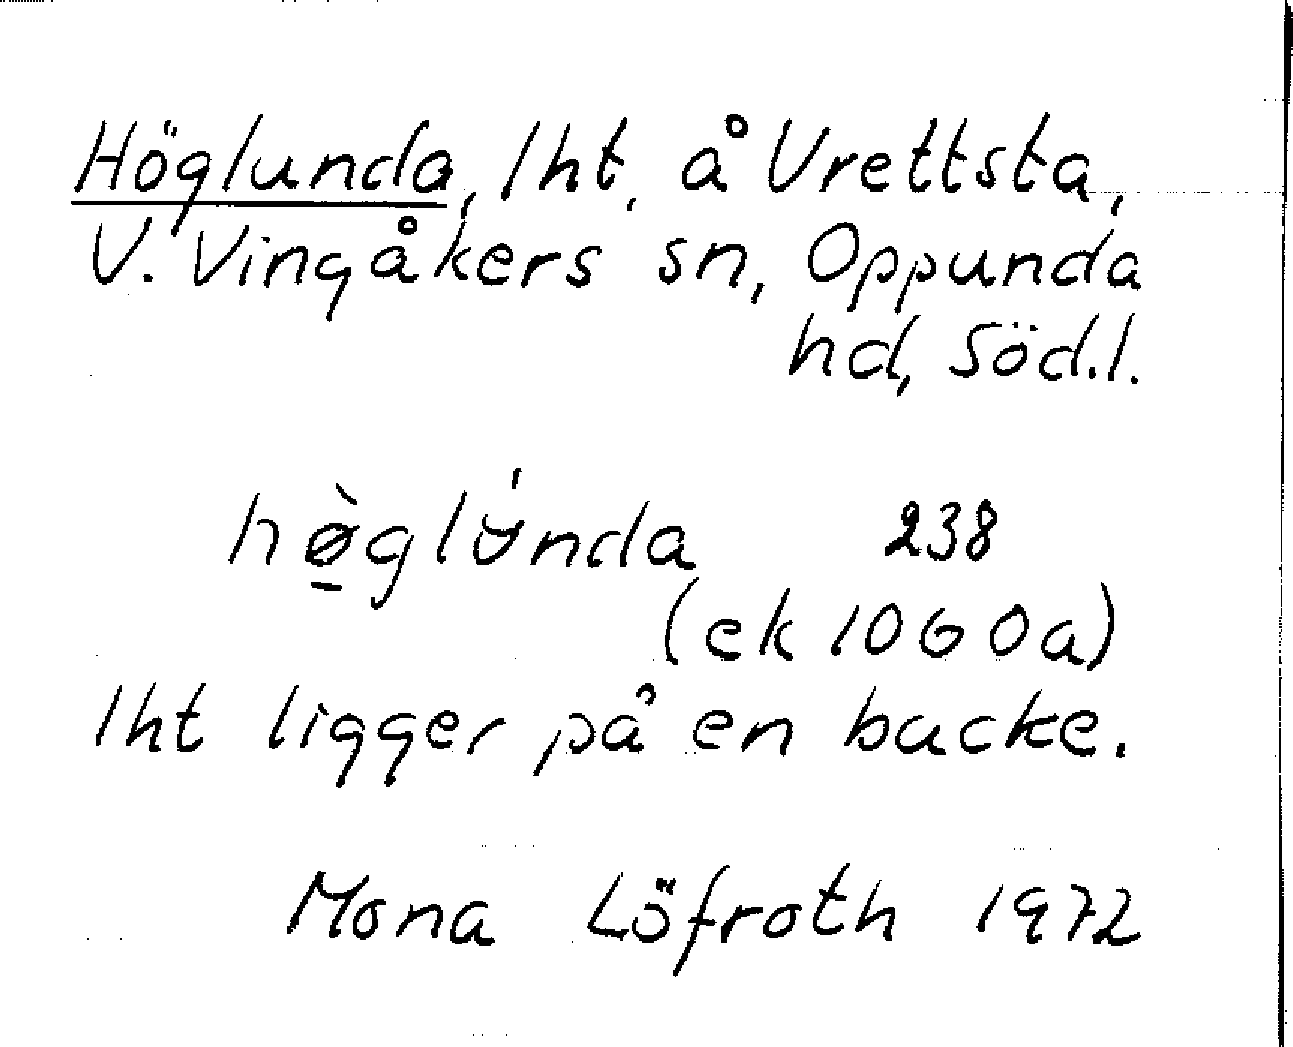 Höglunda, lht, å Vrettsta,
V. Vingåkers sn, Oppunda
hd, Söd.l.
hø̠̀glʉ́nda 238
(ek 1060a)
lht ligger på en backe.
Mona Löfroth 1972